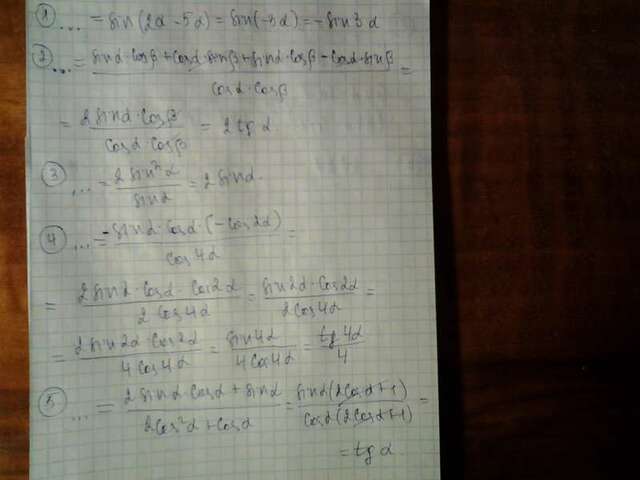 ① ... = sin(2α - 5α) = sin(-3α) = - sin3α
② ... = (sinα·cosβ + cosα·sinβ + sinα·cosβ - cosα·sinβ)/(cosα·cosβ) =
= (2 sinα·cosβ)/(cosα·cosβ) = 2 tg α
③ ... = (2 sin²α)/(sinα) = 2 sinα.
④ ... = (-sinα·cosα·(-cos2α))/(cos4α) =
= (2 sinα·cosα·cos2α)/(2 cos4α) = (sin2α·cos2α)/(2cos4α) =
= (2 sin2α·cos2α)/(4 cos4α) = (sin4α)/(4cos4α) = (tg 4α)/4
⑤ ... = (2 sinα·cosα + sinα)/(2cos²α + cosα) = (sinα(2cosα+1))/(cosα(2cosα+1)) =
= tg α.